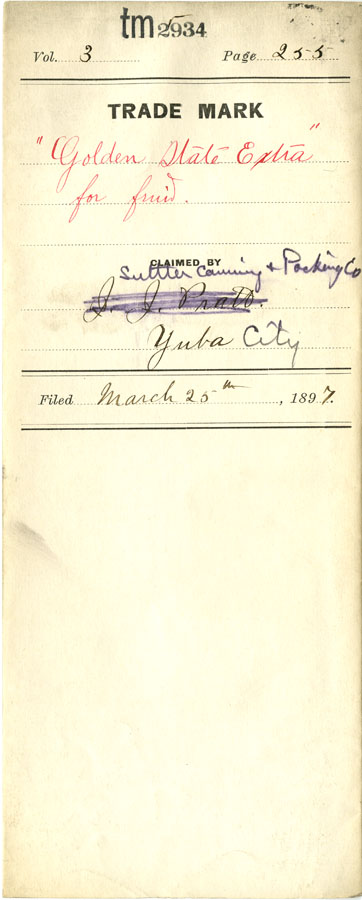 tm 2934
Vol. 3 Page 255
TRADE MARK
"Golden State Extra"
for fruit.
CLAIMED BY
Suttter Canning & Packing Co
J. J. Pratt.
Yuba City
Filed March 25th, 1897.